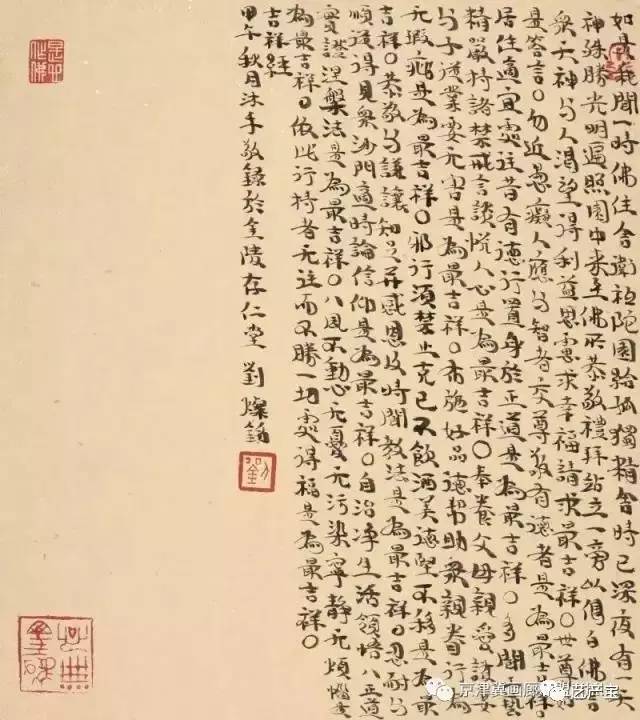 如是我聞一時佛住舍衛祇陀園給孤獨精舍時已深夜有一天
神殊勝光明遍照園中来至佛所恭敬禮拜站立一旁以偈白佛言
眾天神与人渴望得利益思慮求幸福請求最吉祥○世尊如
是答言○勿近愚癡人應与智者交尊敬有德者是為最吉祥
居住適宜處往昔有德行置身於正道是為最吉祥○多聞工藝
精嚴持諸禁戒言談悦人心是為最吉祥○奉養父母親愛護妻
与子從業要无害是為最吉祥○布施好品德幫助衆親眷行為
无瑕疵是為最吉祥○邪行須禁止克己不飲酒美德堅不移是為最
吉祥○恭敬与謙讓知足并感恩及時聞教法是為最吉祥○忍耐与
順從得見衆沙門適時論信仰是為最吉祥○自治净生活領悟八正道
實證涅槃法是為最吉祥○八風不動心无憂无污染寧静无煩惱是
為最吉祥○依此行持者无往而不勝一切處得福是為最吉祥○
吉祥經
甲午秋月沐手敬錄於金陵存仁堂 劉燦銘
京津冀画廊
艺产宝